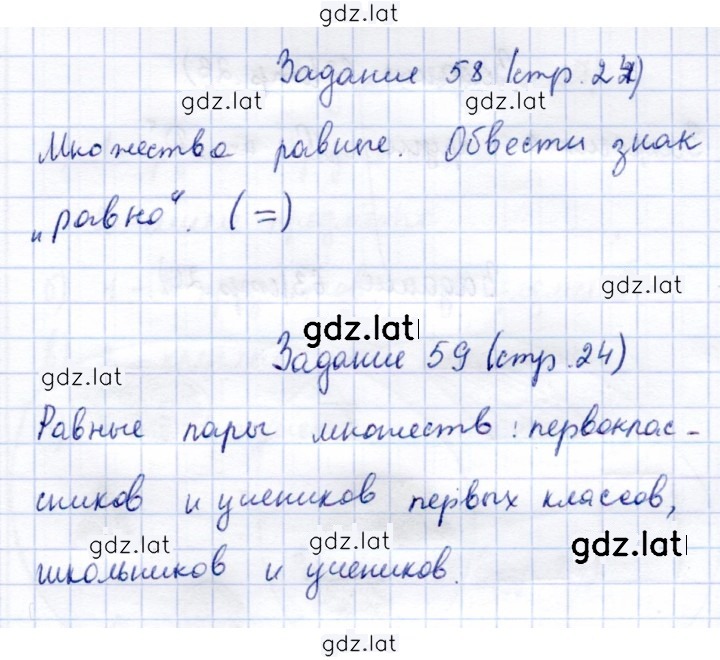 gdz.lat
Задание 58 (стр. 24)
gdz.lat gdz.lat
Множества равные. Обвести знак
„равно". (=)
gdz.lat
gdz.lat
Задание 59 (стр. 24)
gdz.lat
Равные пары множеств: первоклас-
сников и учеников первых классов,
gdz.lat gdz.lat gdz.lat
школьников и учеников.
gdz.lat